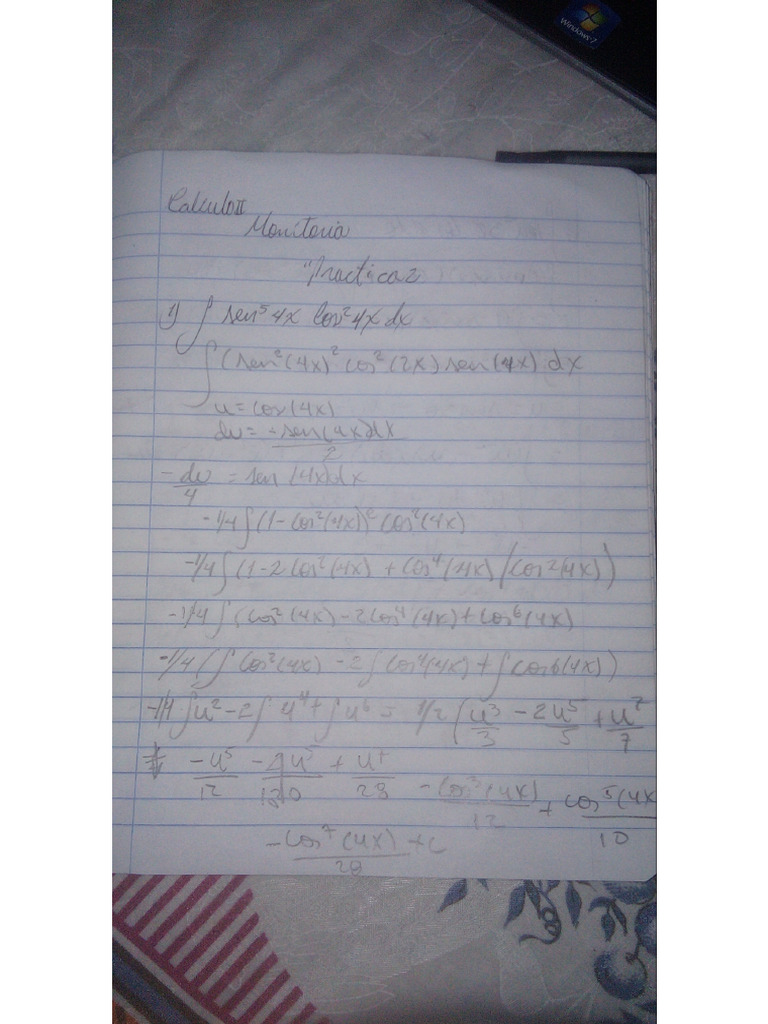 Windows 7
Calculo II
Monitoria
"Practica 2
1) ∫ sen⁵ 4x cos² 4x dx
∫ (sen²(4x)² cos²(2x) sen(4x) dx
u = cos(4x)
du = -sen(4x)dx
-du/4 = sen (4x)dx
-1/4 ∫ (1 - cos²(4x))² cos²(4x)
-1/4 ∫ (1 - 2 cos²(4x) + cos⁴(4x) (cos2(4x))
-1/4 ∫ (cos²(4x) - 2cos⁴(4x) + cos⁶(4x)
-1/4 (∫ cos²(4x) - 2∫ cos⁴(4x) + ∫ cos6(4x))
-1/4 ∫ u² - 2∫ u⁴ + ∫ u⁶ = 1/2 (u³/3 - 2u⁵/5 + u⁷/7
-u⁵/12 - 2u⁵/ + u⁷/28 - cos³(4x)/12 + cos⁵(4x/10
- cos⁷(4x)/28 + c